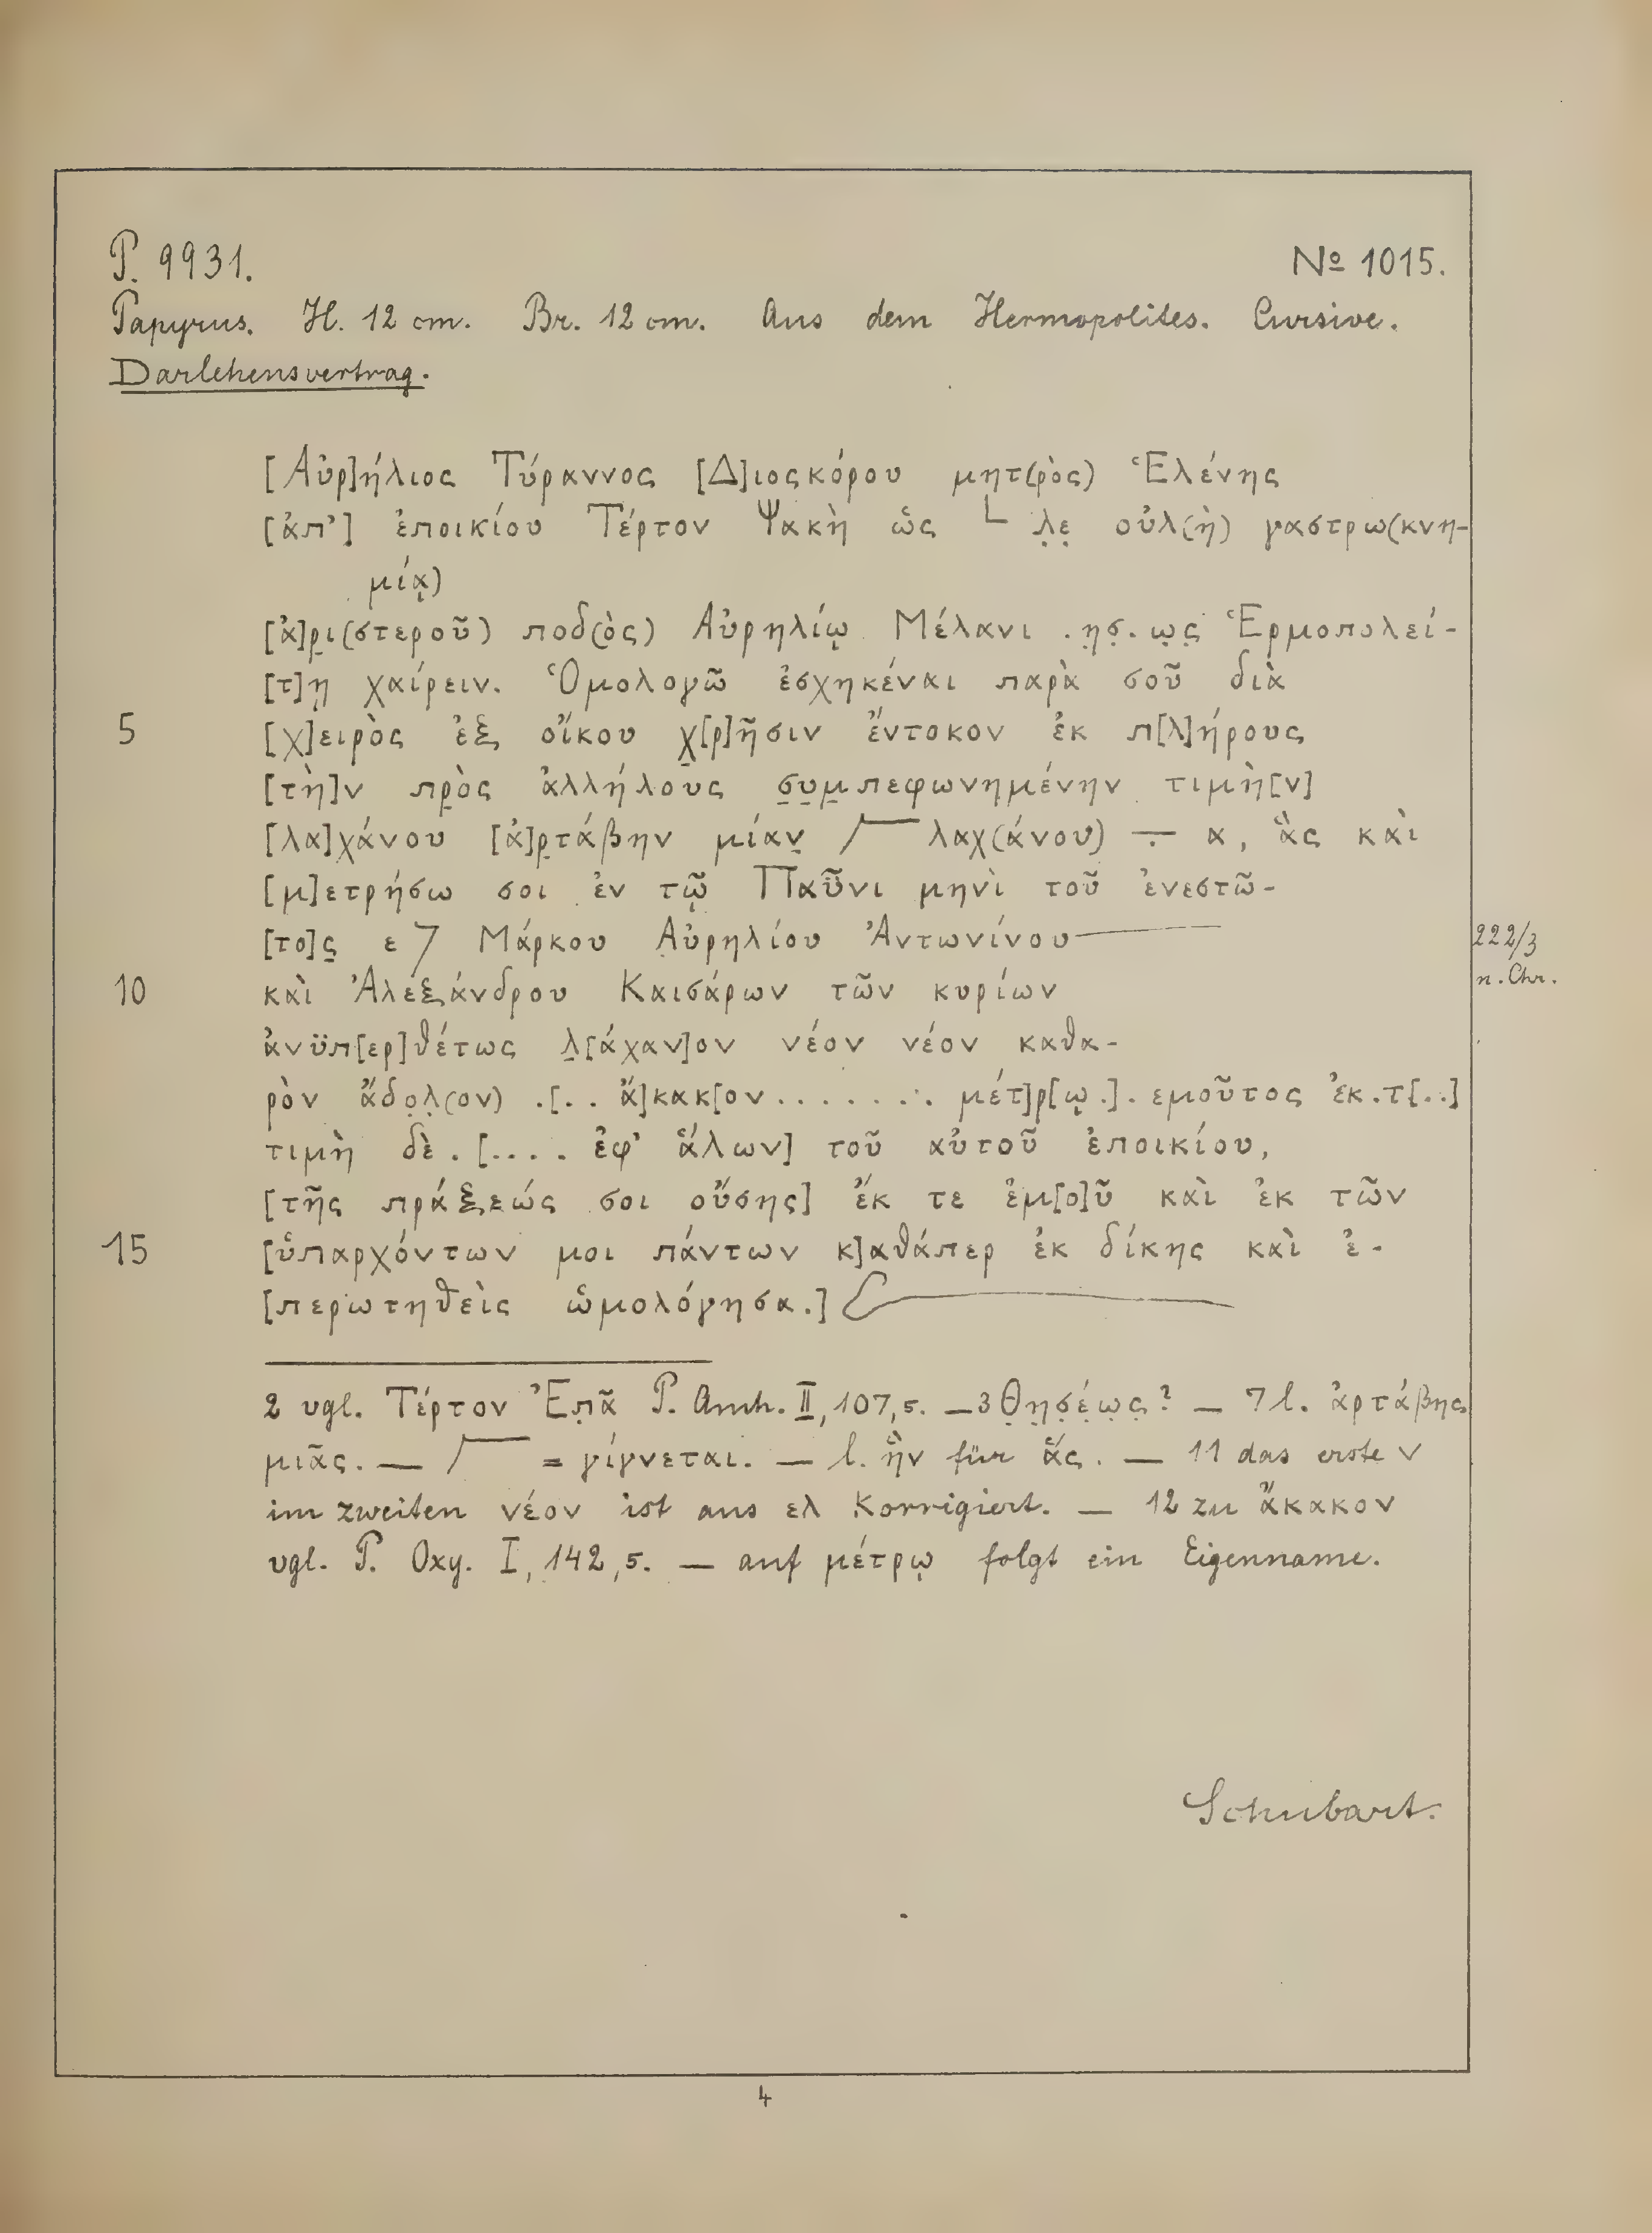 P. 9931.
No 1015.
Papyrus. H. 12 cm. Br. 12 cm. Aus dem Hermopolites. Cursive.
Darlehensvertrag.
[Αὐρ]ήλιος Τύραννος [Δ]ιοσκόρου μητ(ρὸς) Ἑλένης
[ἀπ’] ἐποικίου Τέρτον Ψακὴ ὡς └ λ̣ε̣ οὐλ(ὴ) γαστρω(κνη-
μίᾳ)
[ἀ]ρ̣ι(στεροῦ) ποδ(ὸς) Αὐρηλίῳ Μέλανι .η̣σ̣.ω̣ς̣ Ἑρμοπολεί-
[τ]ῃ χαίρειν. Ὁμολογῶ ἐσχηκέναι παρὰ σοῦ διὰ
5 [χ]ειρὸς ἐξ οἴκου χ̣[ρ]ῆσιν ἔντοκον ἐκ π[λ]ήρους
[τὴ]ν πρ̣ὸς ἀλλήλους σ̣υ̣μ̣πεφωνημένην τιμὴ[ν]
[λα]χάνου [ἀ]ρ̣τάβην μίαν̣ ／‾ λαχ(άνου) ∸ α, ἃς καὶ
[μ]ετρήσω σοι ἐν τῷ Παῦνι μηνὶ τοῦ ἐνεστῶ-
[το]ς̣ ε 7 Μάρκου Αὐρηλίου Ἀντωνίνου
222/3
n. Chr.
10 καὶ Ἀλεξάνδρου Καισάρων τῶν κυρίων
ἀνϋπ[ερ]θέτως λ̣[άχαν]ον νέον νέον καθα-
ρὸν ἄδο̣λ̣(ον) .[.. ἄ]κακ[ον........ μέτ]ρ[ῳ.]. εμοῦτος ἐκ.τ[..]
τιμὴ δὲ.[.... ἐφ’ ἅλων] τοῦ αὐτοῦ ἐποικίου,
[τῆς πράξεώς σοι οὔσης] ἔκ τε ἐμ[ο]ῦ καὶ ἐκ τῶν
15 [ὑπαρχόντων μοι πάντων κ]αθάπερ ἐκ δίκης καὶ ἐ-
[περωτηθεὶς ὡμολόγησα.]
2 vgl. Τέρτον Ἐπ̣ᾶ P. Amh. II, 107,5. — 3 Θ̣η̣σ̣έ̣ω̣ς̣? — 7 l. ἀρτάβης
μιᾶς. — ／‾ = γίγνεται. — l. ἣν für ἅς. — 11 das erste ν
im zweiten νέον ist aus ελ korrigiert. — 12 zu ἄκακον
vgl. P. Oxy. I, 142,5. — auf μέτρῳ folgt ein Eigenname.
Schubart.
4